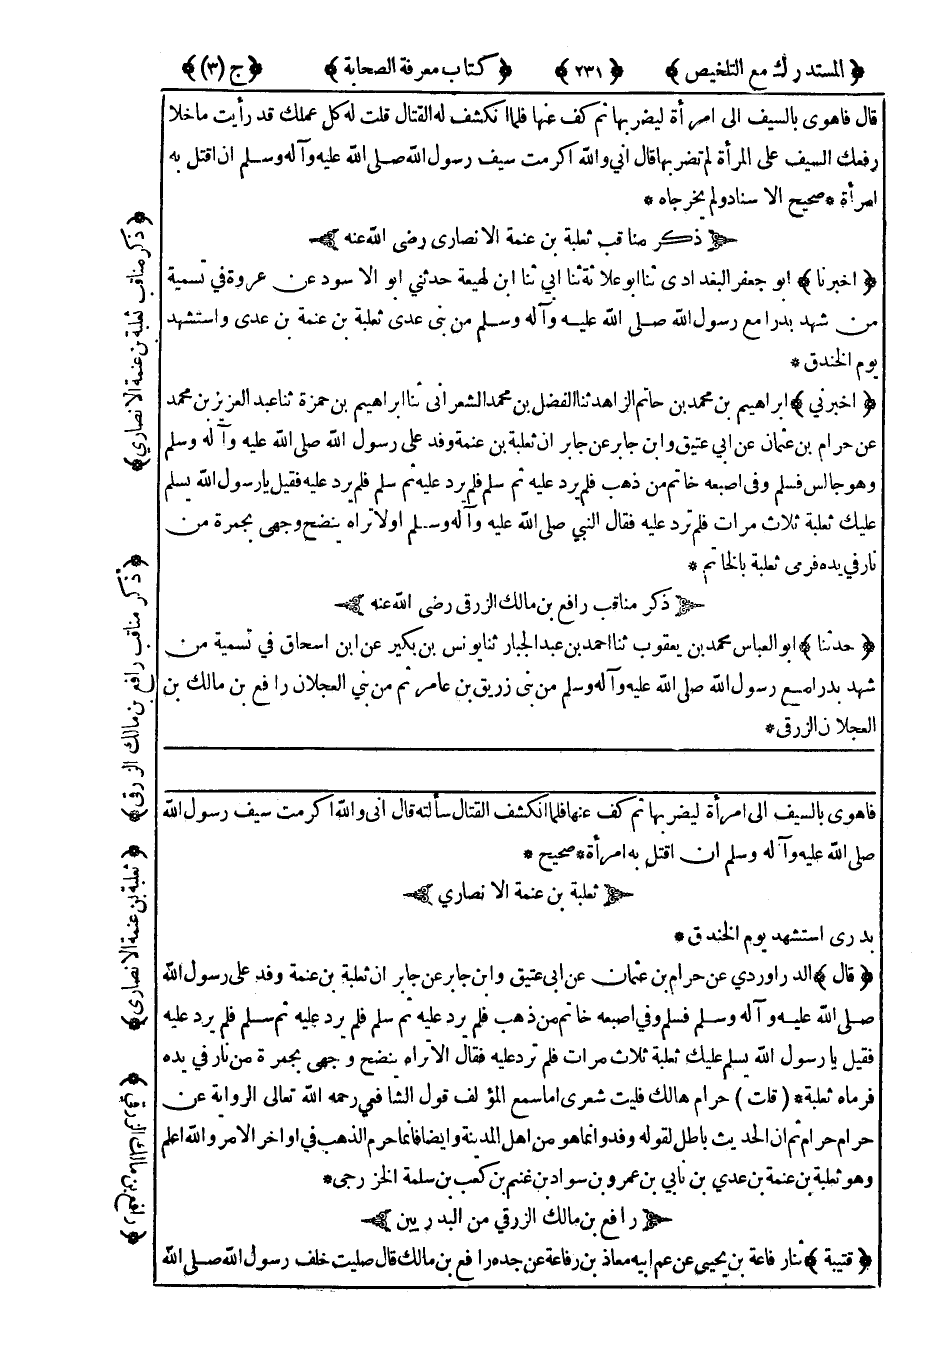 ﴿ المستدرك مع التلخيص ﴾ ﴿ ٢٣١ ﴾ ﴿ كتاب معرفة الصحابة ﴾ ﴿ ج (٣) ﴾
قال فاهوى بالسيف الى امرأة ليضربها ثم كف عنها فلما انكشف له القتال قلت له كل عملك قد رأيت ما خلا
رفعك السيف على المرأة لم تضربها قال اني والله اكرمت سيف رسول الله صلى الله عليه وآله وسلم ان اقتل به
امرأة * صحيح الاسناد ولم يخرجاه *
ذكر مناقب ثعلبة بن عنمة الانصارى رضى الله عنه
﴿ اخبرنا ﴾ ابو جعفر البغدادى ثنا ابو علاثة ثنا ابي ثنا ابن لهيعة حدثني ابو الاسود عن عروة في تسمية
من شهد بدرا مع رسول الله صلى الله عليه وآله وسلم من بنى عدى ثعلبة بن عنمة بن عدى واستشهد
يوم الخندق *
﴿ اخبرني ﴾ ابراهيم بن محمد بن حاتم الزاهد ثنا الفضل بن محمد الشعرانى ثنا ابراهيم بن حمزة ثنا عبد العزيز بن محمد
عن حرام بن عثمان عن ابي عتيق وابن جابر عن جابر ان ثعلبة بن عنمة وفد على رسول الله صلى الله عليه وآله وسلم
وهو جالس فسلم وفى اصبعه خاتم من ذهب فلم يرد عليه ثم سلم فلم يرد عليه ثم سلم فلم يرد عليه فقيل يا رسول الله يسلم
عليك ثعلبة ثلاث مرات فلم ترد عليه فقال النبي صلى الله عليه وآله وسلم اولا تراه ينضح وجهى بجمرة من
نار في يده فرمى ثعلبة بالخاتم *
ذكر مناقب رافع بن مالك الزرقى رضى الله عنه
﴿ حدثنا ﴾ ابو العباس محمد بن يعقوب ثنا احمد بن عبد الجبار ثنا يونس بن بكير عن ابن اسحاق في تسمية من
شهد بدرا مع رسول الله صلى الله عليه وآله وسلم من بنى زريق بن عامر ثم من بني العجلان رافع بن مالك بن
العجلان الزرقى *
فاهوى بالسيف الى امرأة ليضربها ثم كف عنها فلما انكشف القتال سألته قال انى والله اكرمت سيف رسول الله
صلى الله عليه وآله وسلم ان اقتل به امرأة * صحيح *
ثعلبة بن عنمة الانصاري
بدرى استشهد يوم الخندق *
﴿ قال ﴾ الدراوردي عن حرام بن عثمان عن ابى عتيق وابن جابر عن جابر ان ثعلبة بن عنمة وفد على رسول الله
صلى الله عليه وآله وسلم فسلم وفي اصبعه خاتم من ذهب فلم يرد عليه ثم سلم فلم يرد عليه ثم سلم فلم يرد عليه
فقيل يا رسول الله يسلم عليك ثعلبة ثلاث مرات فلم ترد عليه فقال الا تراه ينضح وجهى بجمرة من نار في يده
فرماه ثعلبة * ( قلت ) حرام هالك فليت شعرى اما سمع المؤلف قول الشافعي رحمه الله تعالى الرواية عن
حرام حرام ثم ان الحديث باطل لقوله وفد وانما هو من اهل المدينة وايضا فانما حرم الذهب في اواخر الامر والله اعلم
وهو ثعلبة بن عنمة بن عدي بن نابي بن عمرو بن سواد بن غنيم بن كعب بن سلمة الخزرجى *
رافع بن مالك الزرقي من البدريين
﴿ قتيبة ﴾ ثنا رفاعة بن يحيى عن عم ابيه معاذ بن رفاعة عن جده رافع بن مالك قال صليت خلف رسول الله صلى الله
﴿ ذكر مناقب ثعلبة بن عنمة الانصاري ﴾
﴿ ذكر مناقب رافع بن مالك الزرقى ﴾
﴿ ثعلبة بن عنمة الانصارى ﴾
﴿ رافع بن مالك الزرقي ﴾